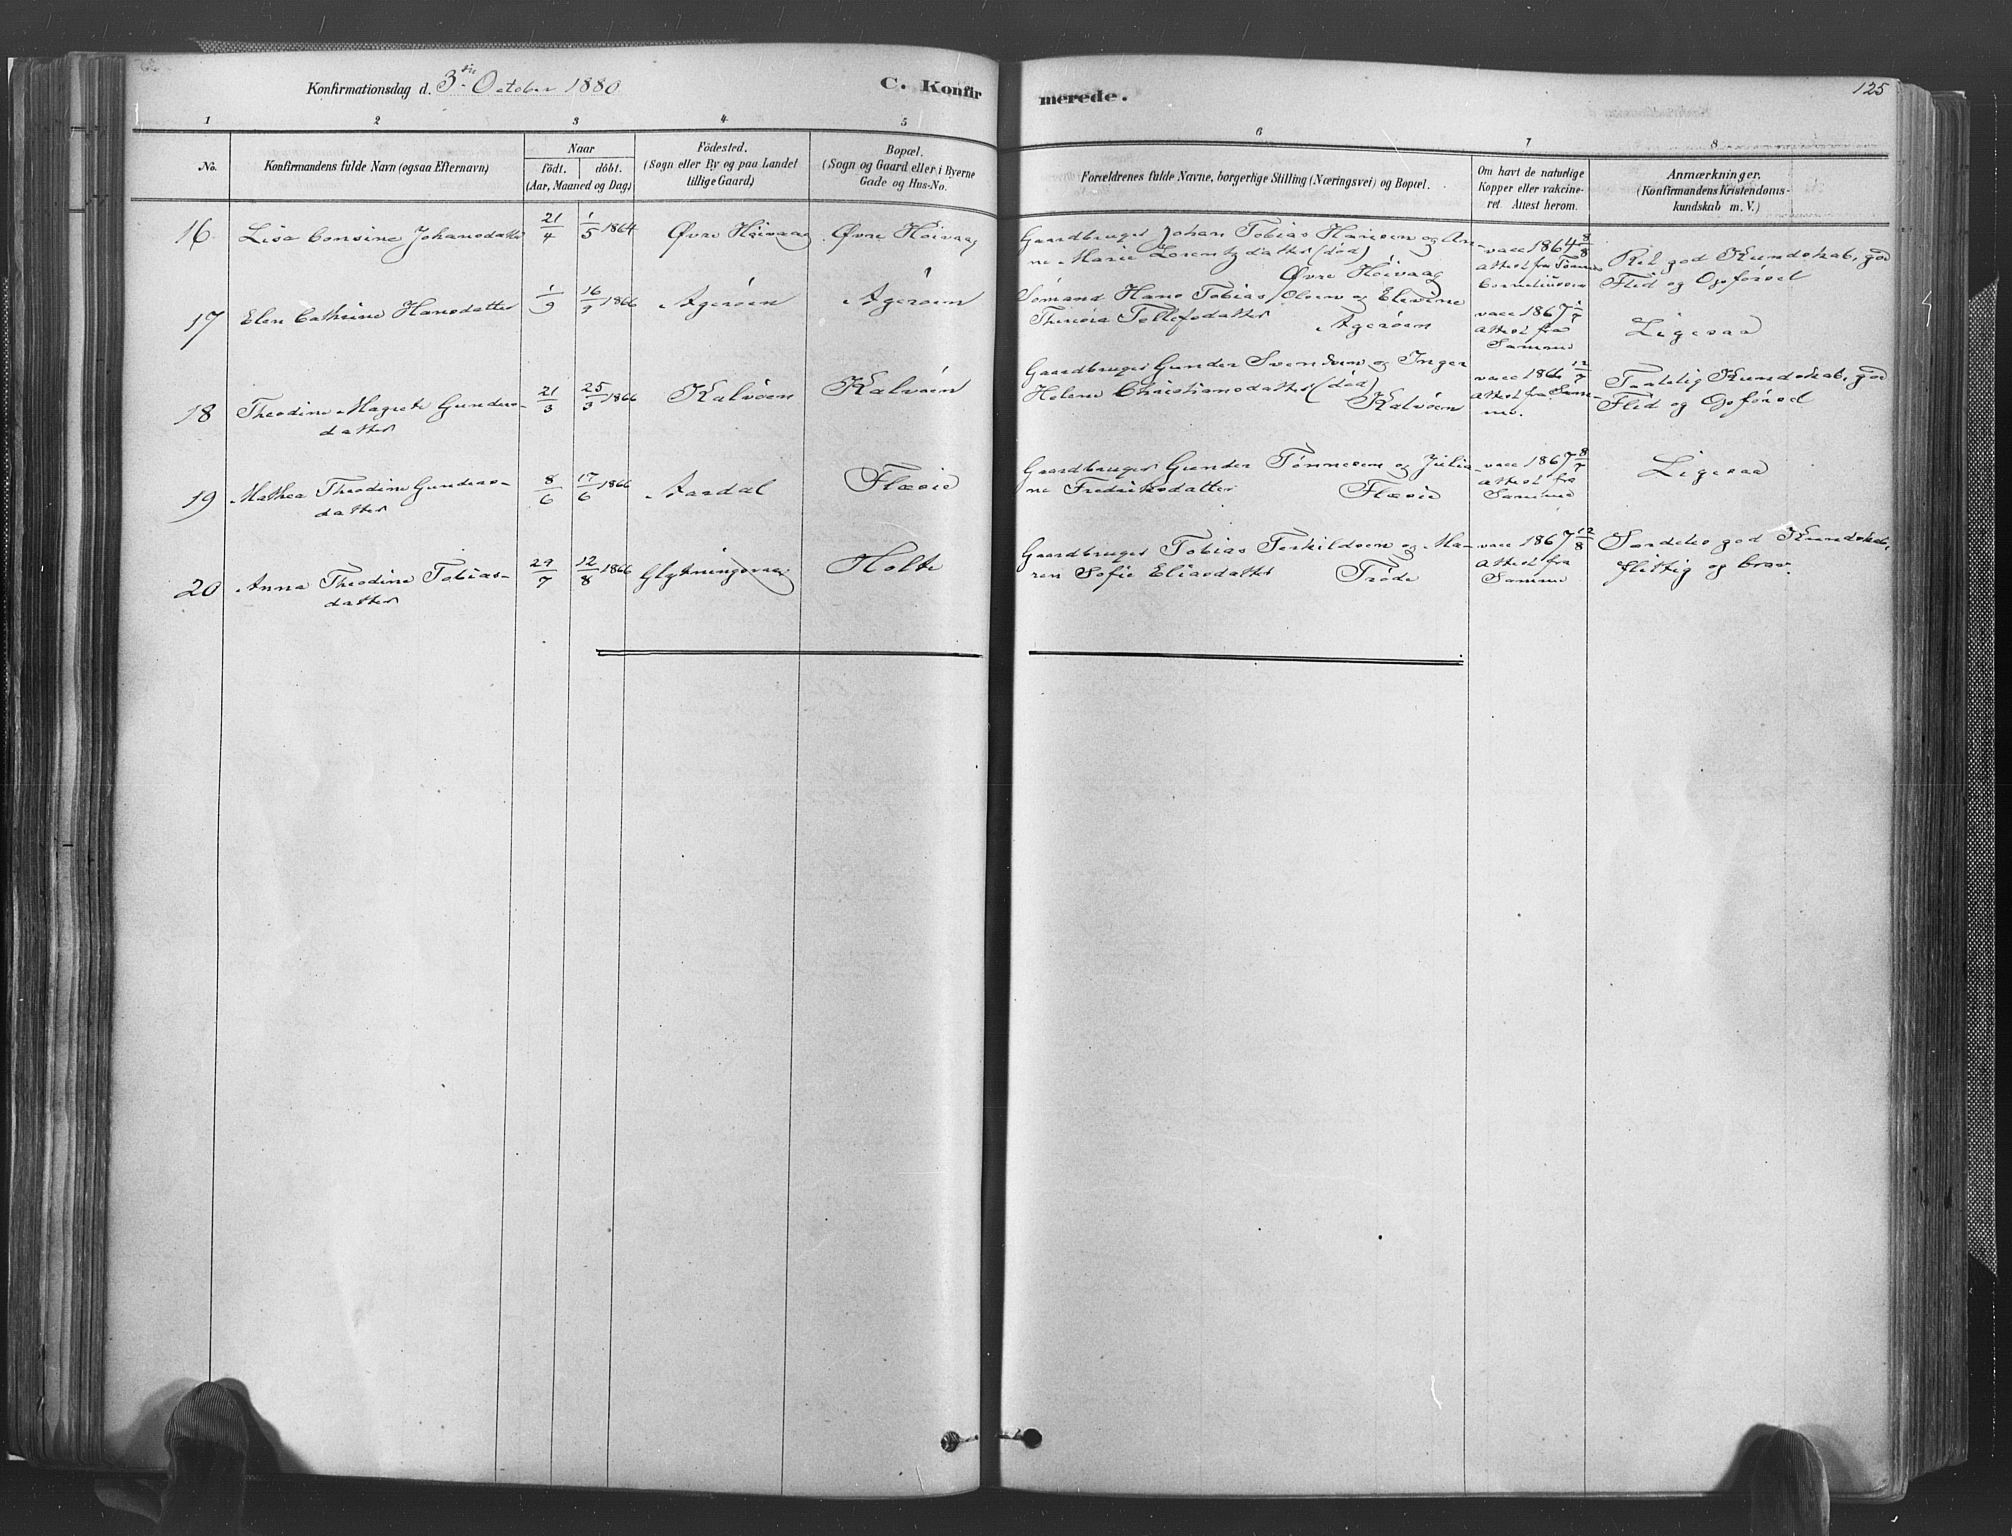 Konfirmationsdag d. 3die October 1880
C. Konfirmerede.
125
1 2 3 4 5 6 7 8
No.
Konfirmandens fulde Navn (ogsaa Efternavn)
Naar
födt. döbt.
(Aar, Maaned og Dag)
Födested.
(Sogn eller By og paa Landet
tillige Gaard)
Bopæl.
(Sogn og Gaard eller i Byerne
Gade og Hus-No.
Forældrenes fulde Navne, borgerlige Stilling (Næringsvei) og Bopæl.
Om havt de naturlige
Kopper eller vakcine-
ret. Attest herom.
Anmærkninger.
(Konfirmandens Kristendoms-
kundskab m. V.)
16 Lisa Consine Johansdatter 21/4 1/5 1864 Øvre Höivaag Øvre Höivaag
Gaardbruger Johan Tobias Hansen og An-
ne Marie Lorentzdatter (död)
Øvre Höivaag
vacc 1864 8/8
Attest fra Tønnes
Corneliussen
Ret god Kundskab, god
Flid og Opførsel
17 Elen Cathrine Hansdatter 1/9 16/9 1866 Agerøen Agerøen
Sømand Hans Tobias Olsen og Elevine
Theresia Tellefsdatter Agerøen
vacc 1867 1/7
Attest fra
Samme
Ligesaa
18 Theodine Magrete Gunders-
datter
21/3 25/3 1866 Kalvøen Kalvøen
Gaardbruger Gunder Svendsen og Inger
Helene Christiansdatter (död)
Kalvøen
vacc 1866 12/7
Attest fra Sam-
me.
Taalelig Kundskab, god
Flid og Opførsel
19 Mathea Theodine Gunders-
datter
8/6 17/6 1866 Aasdal Flæsie
Gaardbruger Gunder Tønnesen og Julia-
ne Fredriksdatter Flæsie
vacc 1867 8/7
Attest fra
Samme
Ligesaa
20 Anna Theodine Tobias-
datter
29/7 12/8 1866 Holte
Gaardbruger Tobias Terkildsen og Ma-
ren Sofie Eliasdatter Trøde
vacc 1867 12/8
Attest fra
Samme
Særdeles god Kundskab,
flittig og brav.